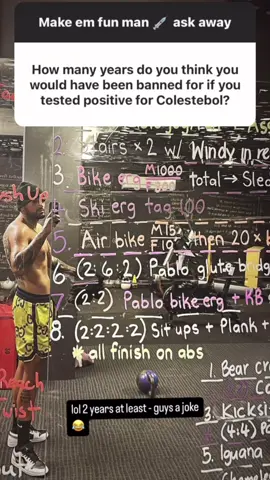 Make em fun man 💉 ask away
How many years do you think you
would have been banned for if you
tested positive for Colestebol?
2. Stairs x 2 w/ Windy in re
3. Bike erg M1000 total → Sled
4. Ski erg tag 100
5. Air bike M15 F10 then 20 x b
6. (2:6:2) Pablo glute bridg
7. (2:2) Pablo bike erg + KB
8. (2:2:2:2) Sit ups + Plank +
* all finish on abs
1. Bear cr
3. Kicksi
(4:4) Po
5. Iguana
Reach
Twist
out
lol 2 years at least - guys a joke
😂